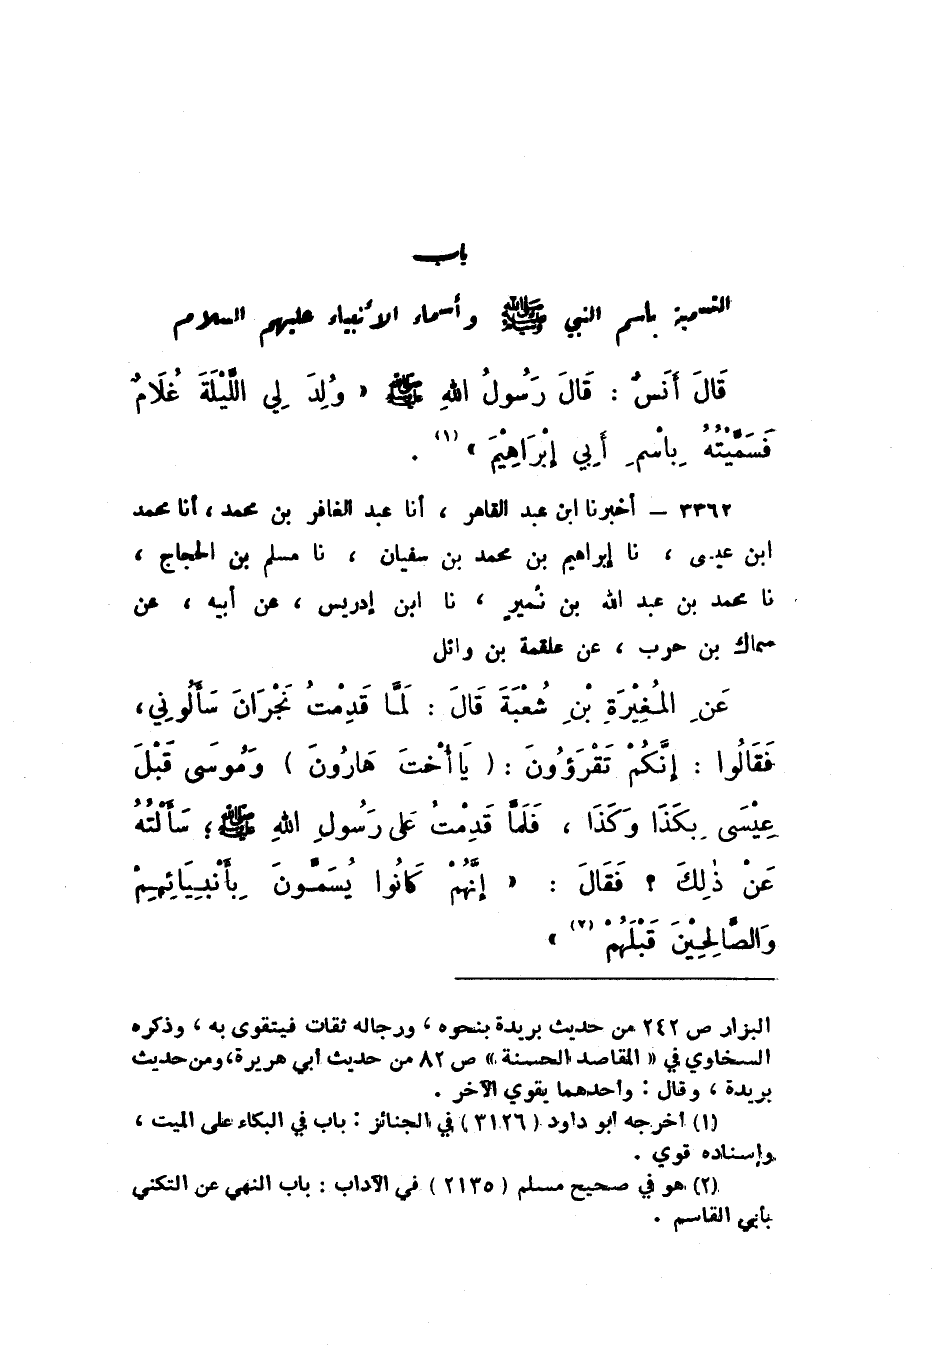 باب
التسمية باسم النبي ﷺ وأسماء الأنبياء عليهم السلام
قَالَ أَنَسٌ : قَالَ رَسُولُ اللهِ ﷺ « وُلِدَ لِي اللَّيْلَةَ غُلَامٌ
فَسَمَّيْتُهُ بِاسْمِ أَبِي إِبْرَاهِيْمَ » (١) .
٣٣٦٢ – أخبرنا ابن عبد القاهر ، أنا عبد الغافر بن محمد ، أنا محمد
ابن عيسى ، نا إبراهيم بن محمد بن سفيان ، نا مسلم بن الحجاج ،
نا محمد بن عبد الله بن نُميرٍ ، نا ابن إدريس ، عن أبيه ، عن
سماك بن حرب ، عن علقمة بن وائل
عَنِ المُغِيْرَةِ بْنِ شُعْبَةَ قَالَ : لَمَّا قَدِمْتُ نَجْرَانَ سَأَلُونِي ،
فَقَالُوا : إِنَّكُمْ تَقْرَؤُونَ : ( يَا أُخْتَ هَارُونَ ) وَمُوسَى قَبْلَ
عِيْسَى بِكَذَا وَكَذَا ، فَلَمَّا قَدِمْتُ عَلَى رَسُولِ اللهِ ﷺ ؛ سَأَلْتُهُ
عَنْ ذٰلِكَ ؟ فَقَالَ : « إِنَّهُمْ كَانُوا يُسَمُّونَ بِأَنْبِيَائِهِمْ
وَالصَّالِحِيْنَ قَبْلَهُمْ (٢) »
البزار ص ٢٤٢ من حديث بريدة بنحوه ، ورجاله ثقات فيتقوى به ، وذكره
السخاوي في « المقاصد الحسنة » ص ٨٢ من حديث أبي هريرة ، ومن حديث
بريدة ، وقال : وأحدهما يقوي الآخر .
(١) أخرجه أبو داود ( ٣١٢٦ ) في الجنائز : باب في البكاء على الميت ،
وإسناده قوي .
(٢) هو في صحيح مسلم ( ٢١٣٥ ) في الآداب : باب النهي عن التكني
بأبي القاسم .